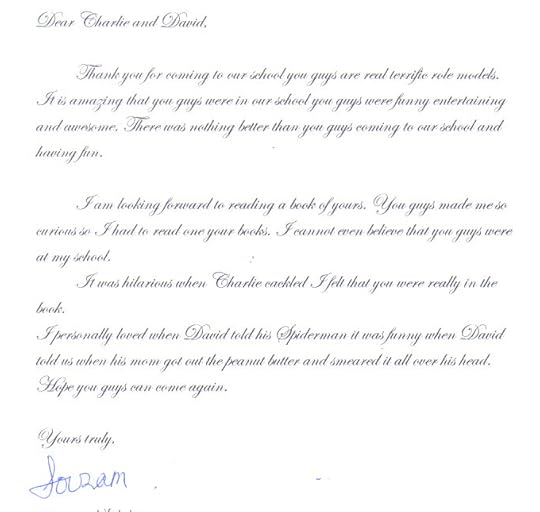 Dear Charlie and David,
Thank you for coming to our school you guys are real terrific role models.
It is amazing that you guys were in our school you guys were funny entertaining
and awesome. There was nothing better than you guys coming to our school and
having fun.
I am looking forward to reading a book of yours. You guys made me so
curious so I had to read one your books. I cannot even believe that you guys were
at my school.
It was hilarious when Charlie cackled I felt that you were really in the
book.
I personally loved when David told his Spiderman it was funny when David
told us when his mom got out the peanut butter and smeared it all over his head.
Hope you guys can come again.
Yours truly,